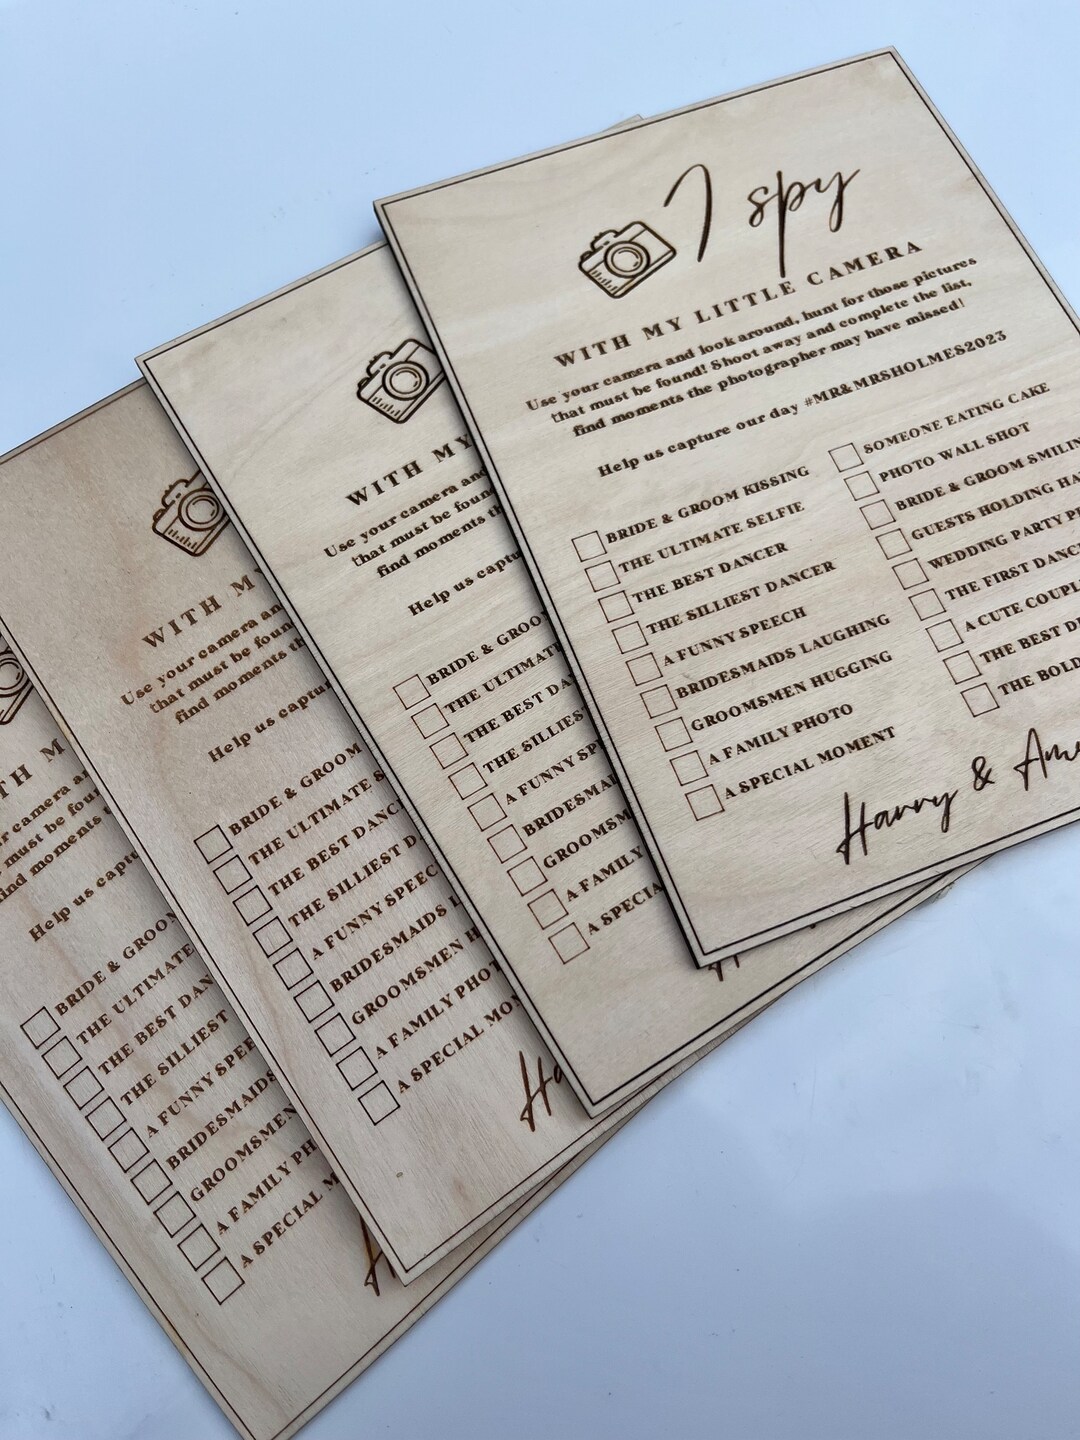 I spy
WITH MY LITTLE CAMERA
Use your camera and look around, hunt for those pictures
that must be found! Shoot away and complete the list,
find moments the photographer may have missed!
Help us capture our day #MR&MRSHOLMES2023
BRIDE & GROOM KISSING
THE ULTIMATE SELFIE
THE BEST DANCER
THE SILLIEST DANCER
A FUNNY SPEECH
BRIDESMAIDS LAUGHING
GROOMSMEN HUGGING
A FAMILY PHOTO
A SPECIAL MOMENT
SOMEONE EATING CAKE
PHOTO WALL SHOT
BRIDE & GROOM
GUESTS HOLDING
WEDDING PARTY
THE FIRST
A CUTE
THE BEST
THE BOLD
Harry &
WITH MY
Use your camera and
that must be
find moments
Help us
BRIDE &
THE ULTIMATE
THE BEST
THE SILLIEST
A FUNNY
A FAMILY
A
WITH
Use your camera
that must be
find moments
Help us
BRIDE & GROOM
THE ULTIMATE
THE BEST
THE SILLIEST
A FUNNY
BRIDESMAIDS
GROOMSMEN
A FAMILY
A SPECIAL
camera
must be
moments
Help us
BRIDE &
THE ULTIMATE
THE BEST
THE SILLIEST
A FUNNY
BRIDESMAIDS
GROOMSMEN
A FAMILY
A SPECIAL